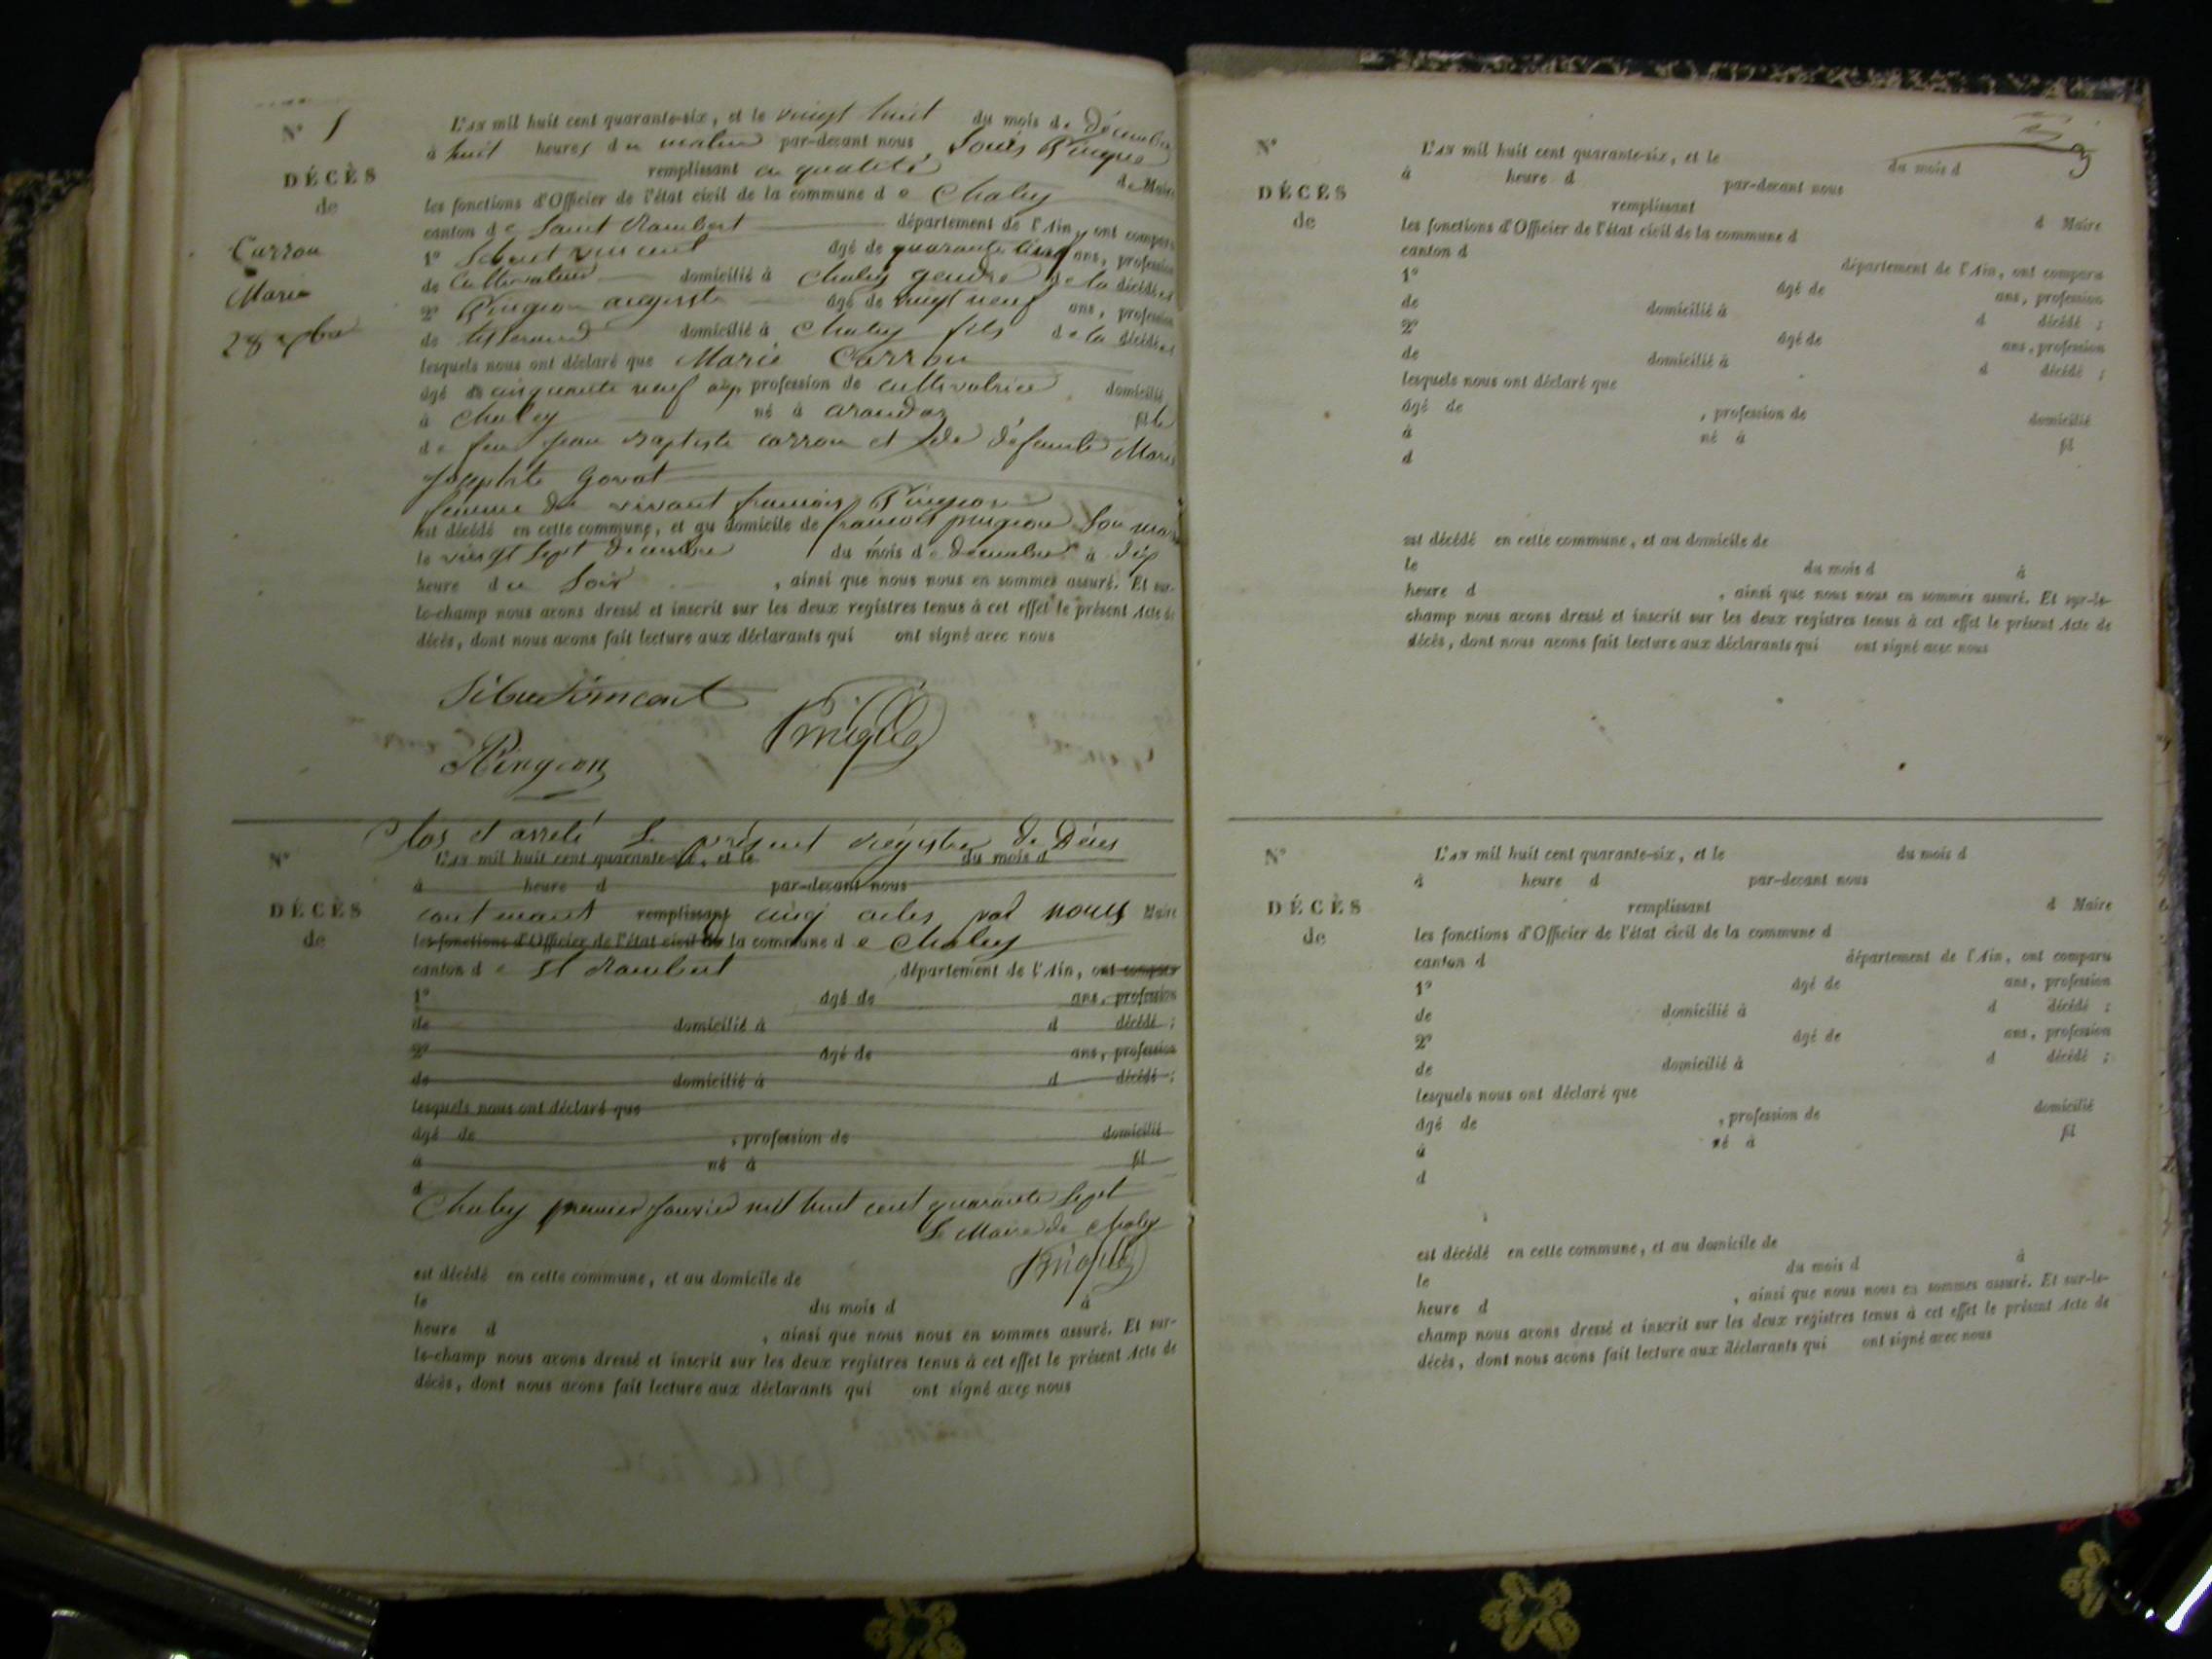 N° 5
DÉCÈS
de
Carron
Marie
28 Xbre
L'AN mil huit cent quarante-six, et le vingt huit du mois de Décembre
à huit heures du matin par-devant nous Louis
remplissant en qualité de Maire
les fonctions d'Officier de l'état civil de la commune de Chaley
canton de Saint Rambert département de l'Ain, ont comparu
1° Sibuet vincent âgé de quarante cinq ans, profession
de Cultivateur domicilié à Chaley gendre de la décédée;
2° Pingeon auguste âgé de vingt neuf ans, profession
de tisserand domicilié à Chaley fils de la décédée;
lesquels nous ont déclaré que Marie Carron
âgé de cinquante neuf ans, profession de cultivatrice domicilié
à Chaley né à arandas fille
de feu jean Baptiste carron et de défunte Marie
josephte Govat
femme de vivant francois Pingeon
est décédé en cette commune, et au domicile de francois pingeon Son mari
le vingt Sept décembre du mois de décembre à dix
heure du Soir , ainsi que nous nous en sommes assuré. Et sur-
le-champ nous avons dressé et inscrit sur les deux registres tenus à cet effet le présent Acte de
décès, dont nous avons fait lecture aux déclarants qui ont signé avec nous
Sibuet vincent
Pingeon
Clos et arrelé Le présent régistre de Décès
N°
DÉCÈS
de
L'AN mil huit cent quarante-six, et le du mois d
à heure d par-devant nous
contenant remplissant cinq actes par nous Maire
les fonctions d'Officier de l'état civil de la commune de Chaley
canton de St Rambert département de l'Ain, ont comparu
1° âgé de ans, profession
de domicilié à d décédé ;
2° âgé de ans, profession
de domicilié à d décédé ;
lesquels nous ont déclaré que
âgé de , profession de domicilié
à né à fil
d
Chaley premier janvier mil huit cent quarante Sept
Le Maire de Chaley
est décédé en cette commune, et au domicile de
le du mois d à
heure d , ainsi que nous nous en sommes assuré. Et sur-
le-champ nous avons dressé et inscrit sur les deux registres tenus à cet effet le présent Acte de
décès, dont nous avons fait lecture aux déclarants qui ont signé avec nous
N°
DÉCÈS
de
L'AN mil huit cent quarante-six, et le du mois d
à heure d par-devant nous
remplissant d Maire
les fonctions d'Officier de l'état civil de la commune d
canton d département de l'Ain, ont comparu
1° âgé de ans, profession
de domicilié à d décédé ;
2° âgé de ans, profession
de domicilié à d décédé ;
lesquels nous ont déclaré que
âgé de , profession de domicilié
à né à fil
d
est décédé en cette commune, et au domicile de
le du mois d à
heure d , ainsi que nous nous en sommes assuré. Et sur-le-
champ nous avons dressé et inscrit sur les deux registres tenus à cet effet le présent Acte de
décès, dont nous avons fait lecture aux déclarants qui ont signé avec nous
N°
DÉCÈS
de
L'AN mil huit cent quarante-six, et le du mois d
à heure d par-devant nous
remplissant d Maire
les fonctions d'Officier de l'état civil de la commune d
canton d département de l'Ain, ont comparu
1° âgé de ans, profession
de domicilié à d décédé ;
2° âgé de ans, profession
de domicilié à d décédé ;
lesquels nous ont déclaré que
âgé de , profession de domicilié
à né à fil
d
est décédé en cette commune, et au domicile de
le du mois d à
heure d , ainsi que nous nous en sommes assuré. Et sur-le-
champ nous avons dressé et inscrit sur les deux registres tenus à cet effet le présent Acte de
décès, dont nous avons fait lecture aux déclarants qui ont signé avec nous